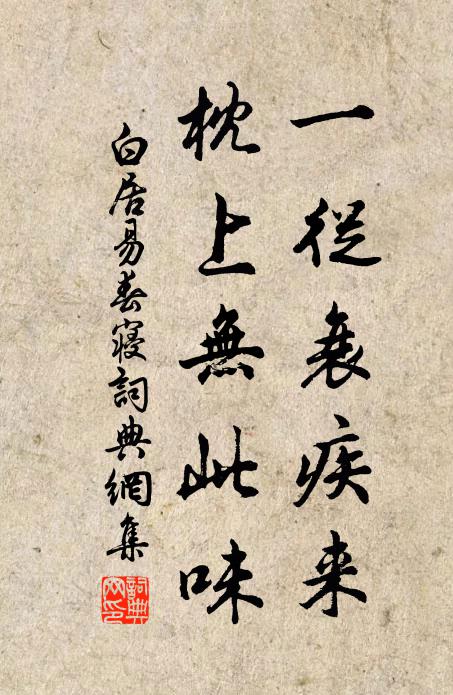 一從衰疾来
枕上無此味
白居易春寢詞典網集
詞典网印